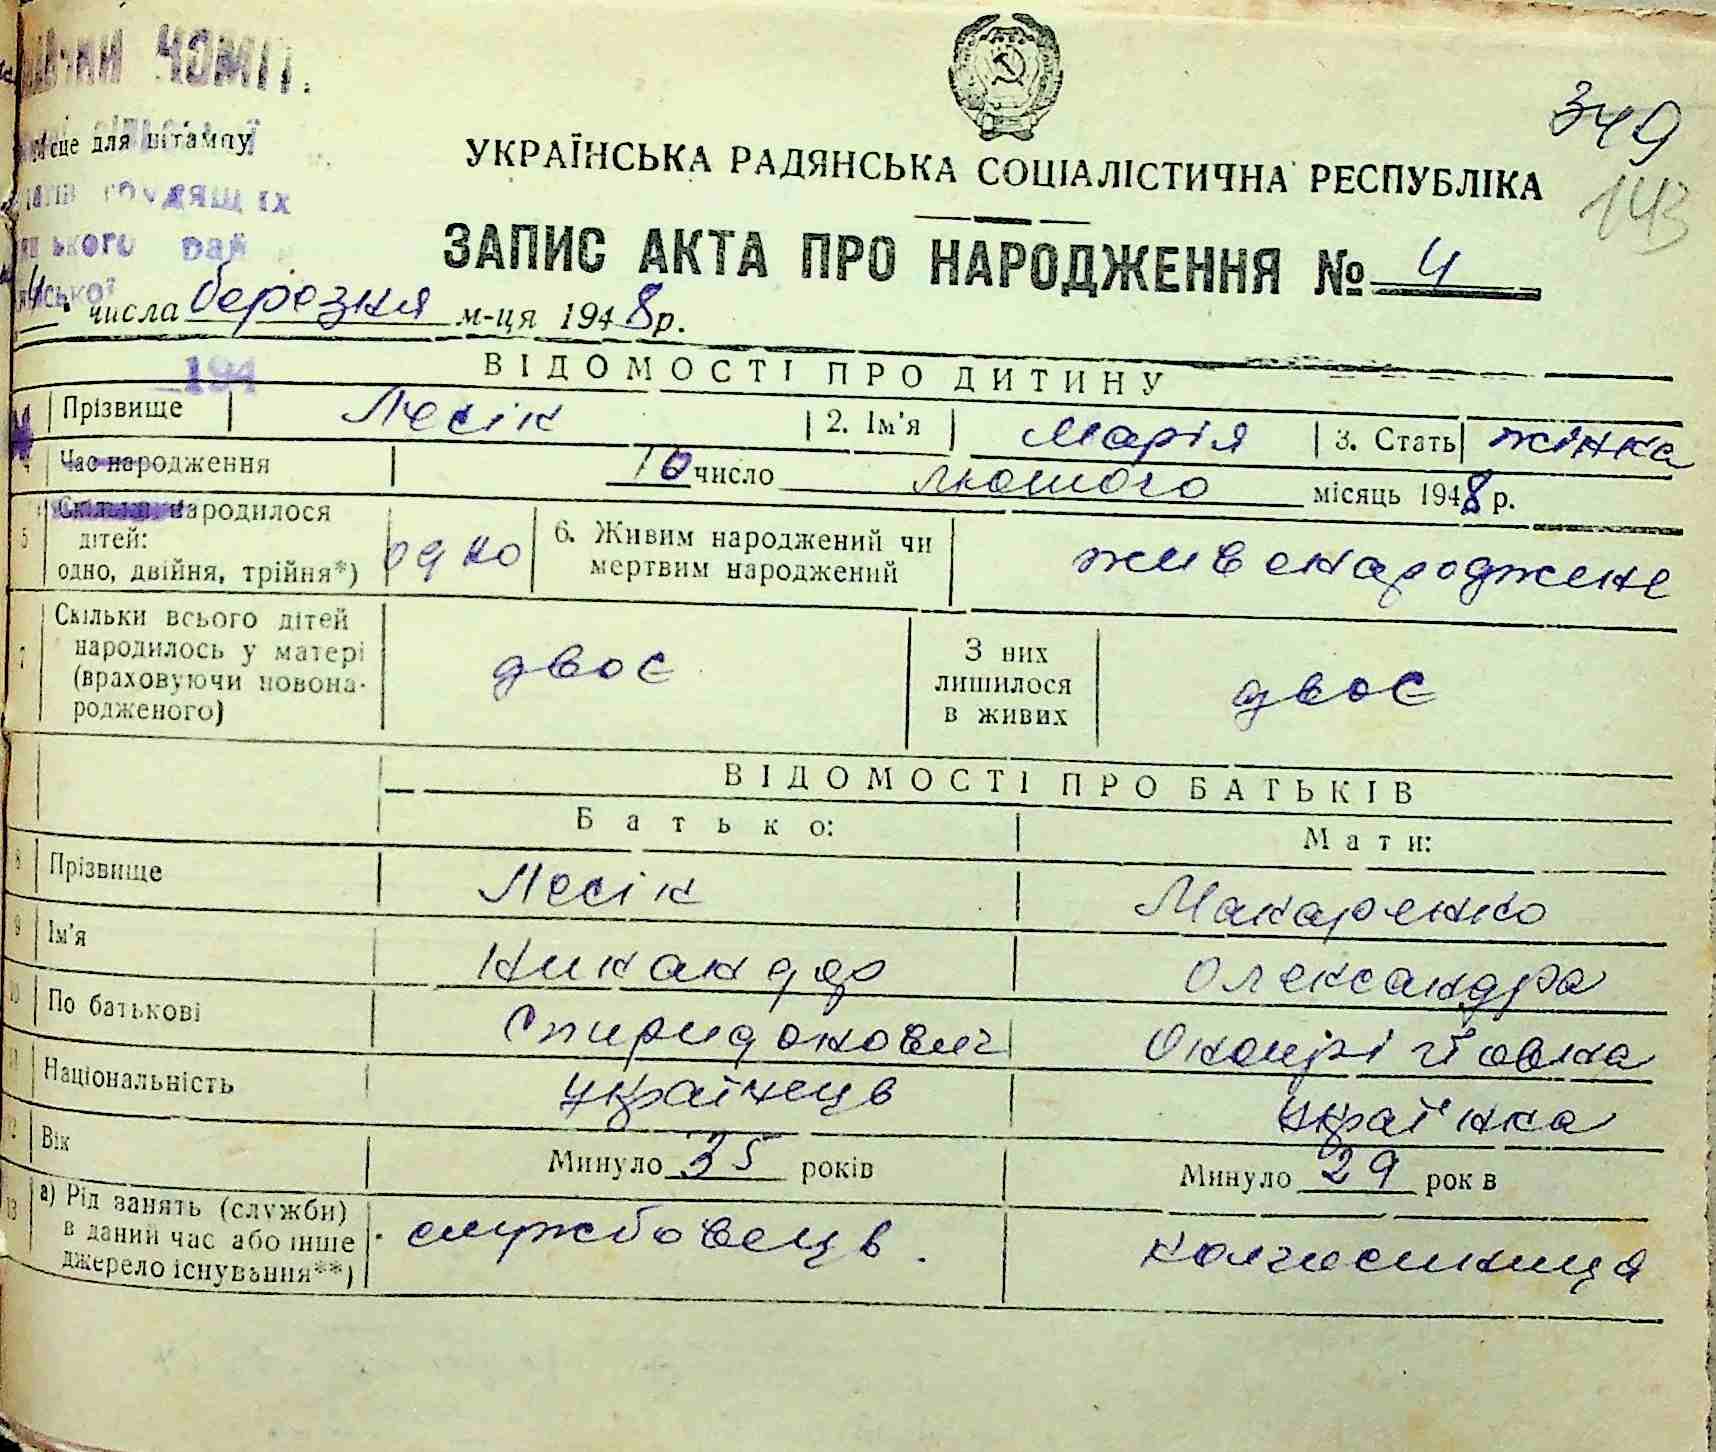 349
143
місце для штампу
УКРАЇНСЬКА РАДЯНСЬКА СОЦІАЛІСТИЧНА РЕСПУБЛІКА
ЗАПИС АКТА ПРО НАРОДЖЕННЯ № 4
4 числа березня м-ця 1948 р.
194
ВІДОМОСТІ ПРО ДИТИНУ
Прізвище Лесік 2. Ім'я Марія 3. Стать жінка
4 Час народження 16 число лютого місяць 1948 р.
5 Скільки народилося дітей: одно, двійня, трійня*) одно 6. Живим народжений чи мертвим народжений живенароджене
7 Скільки всього дітей народилось у матері (враховуючи новонародженого) двоє З них лишилося в живих двоє
ВІДОМОСТІ ПРО БАТЬКІВ
Батько: Мати:
8 Прізвище Лесік Макаренко
9 Ім'я Никандр Олександра
10 По батькові Спиридонович
11 Національність українець українка
12 Вік Минуло 35 років Минуло 29 рок в
13 а) Рід занять (служби) в даний час або інше джерело існування**) службовець. колгоспниця